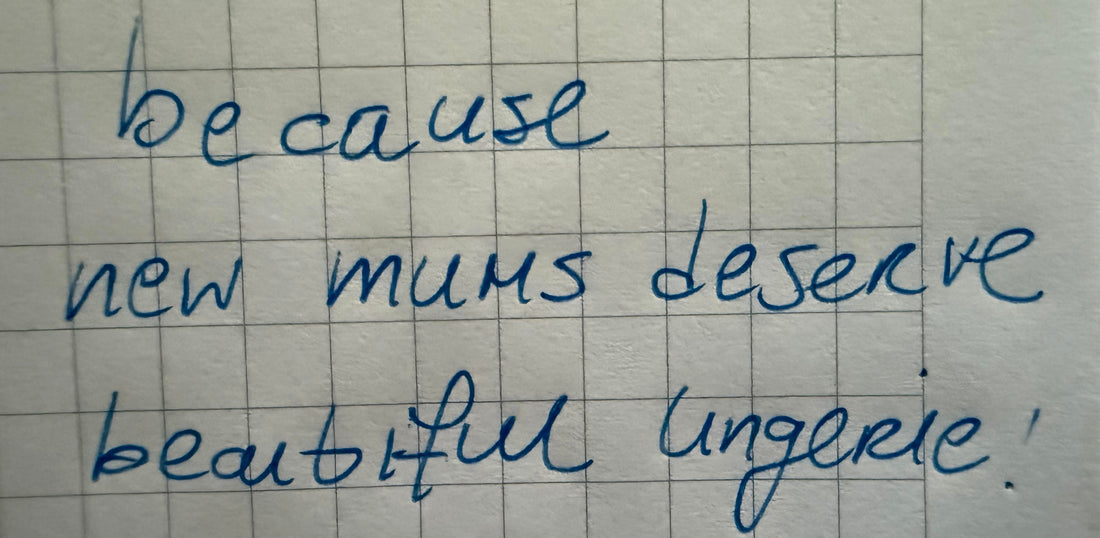 because
new mums deserve
beautiful lingerie!